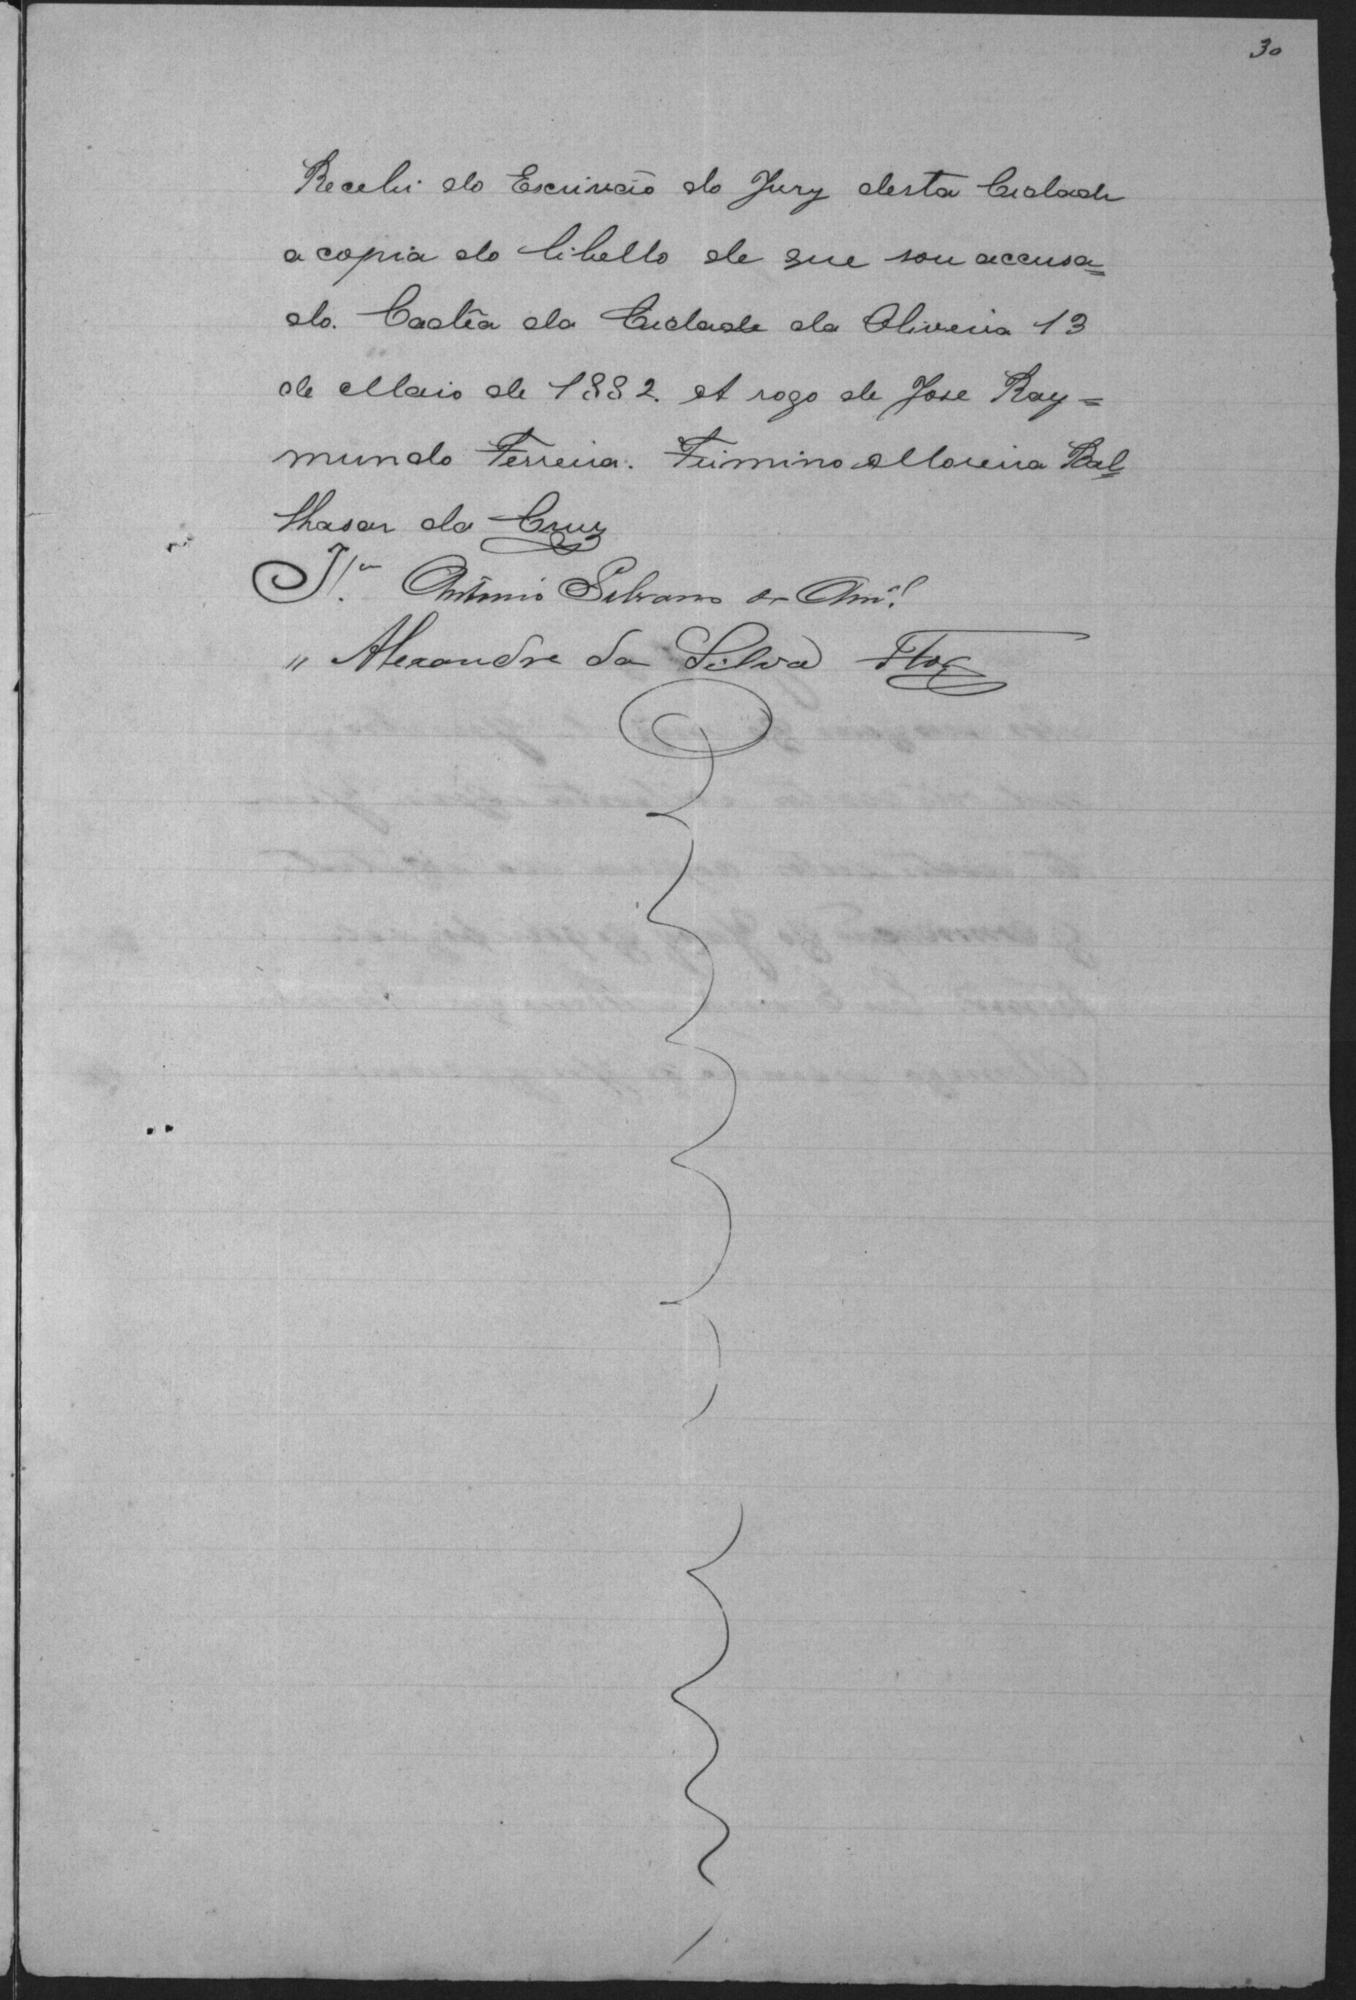 30
Recebi do Escrivão do Jury desta Cidade
a copia do libello de que sou accusa=
do. Cadêa da Cidade da Oliveira 13
de Maio de 1882. A rogo de Jose Ray=
mundo Ferreira. Firmino Moreira Bal=
thasar da Cruz
Antonio Silvano
" Alexandre da Silva